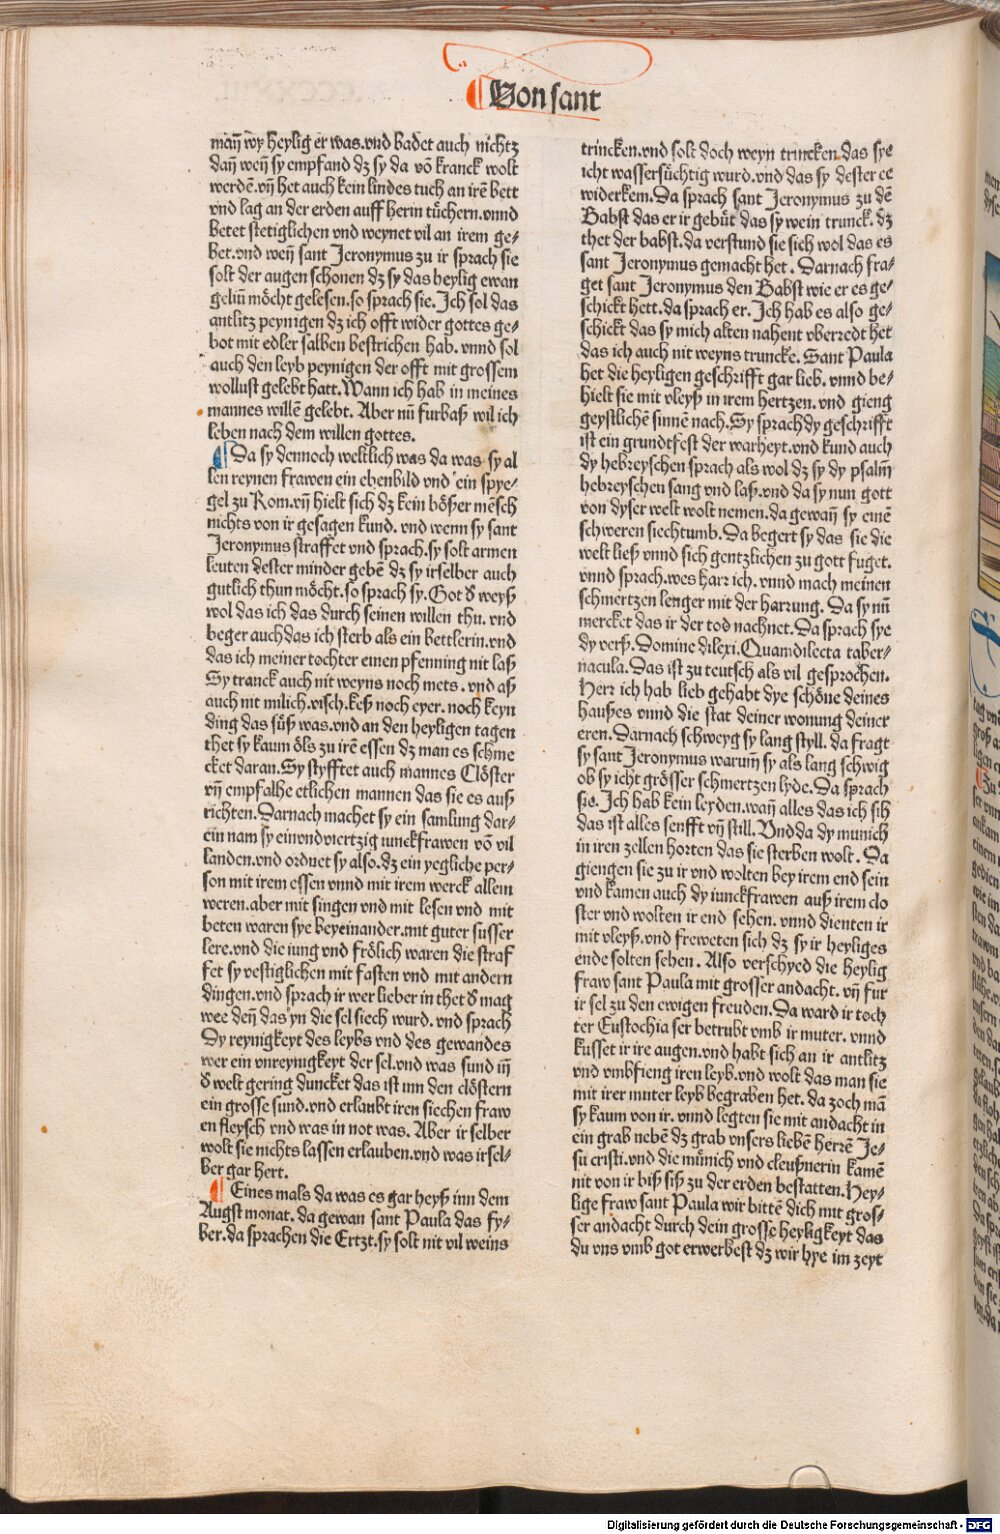 Von sant
mañ wy heylig er was.vnd badet auch nichtz
dañ weñ sy empfand dz sy da võ kranck wolt
werdẽ.vñ het auch kein lindes tuch an irẽ bett
vnd lag an der erden auff herin tüchern.vnnd
betet stetiglichen vnd weynet vil an irem ge⸗
bet.vnd weñ sant Jeronymus zu ir sprach sie
solt der augen schonen dz sy das heylig ewan
geliũ möcht gelesen.so sprach sie. Ich sol das
antlitz peynigen dz ich offt wider gottes ge⸗
bot mit edler salben bestrichen hab. vnnd sol
auch den leyb peynigen der offt mit grossem
wollust gelebt hatt. Wann ich hab in meines
mannes willẽ gelebt. Aber nũ furbaß wil ich
leben nach dem willen gottes.
Da sy dennoch weltlich was da was sy al
len reynen frawen ein ebenbild vnd ein spye⸗
gel zu Rom.vñ hielt sich dz kein bößer mẽsch
nichts von ir gesagen kund. vnd wenn sy sant
Jeronymus straffet vnd sprach.sy solt armen
leuten dester minder gebẽ dz sy irselber auch
gutlich thun möcht.so sprach sy. Got d̕ weyß
wol das ich das durch seinen willen thu. vnd
beger auch das ich sterb als ein bettlerin.vnd
das ich meiner tochter einen pfenning nit laß
Sy tranck auch nit weyns noch mets. vnd aß
auch nit milich.visch.keß noch eyer. noch keyn
ding das süß was.vnd an den heyligen tagen
thet sy kaum öls zu irẽ essen dz man es schme
cket daran. Sy styfftet auch mannes Clöster
vñ empfalhe etlichen mannen das sie es auß
richten. Darnach machet sy ein samlung dar⸗
ein nam sy einvndviertzig iunckfrawen võ vil
landen.vnd ordnet sy also.dz ein yegliche per⸗
son mit irem essen vnnd mit irem werck allein
weren.aber mit singen vnd mit lesen vnd mit
beten waren sye beyeinander.mit guter susser
lere.vnd die iung vnd frölich waren die straf
fet sy vestiglichen mit fasten vnd mit andern
dingen.vnd sprach ir wer lieber in thet d̕ mag
wee deñ das yn die sel siech wurd. vnd sprach
Dy reynigkeyt des leybs vnd des gewandes
wer ein vnreynigkeyt der sel.vnd was sund iñ
d̕ welt gering duncket das ist inn den clöstern
ein grosse sund.vnd erlaubt iren siechen fraw
en fleysch vnd was in not was. Aber ir selber
wolt sie nichts lassen erlauben.vnd was irsel⸗
ber gar hert.
Eines mals da was es gar heyß inn dem
Augst monat. da gewan sant Paula das fy⸗
ber.da sprachen die Ertzt.sy solt nit vil weins
trincken.vnd solt doch weyn trincken.das sye
icht wassersüchtig wurd.vnd das sy dester ee
widerkem. Da sprach sant Jeronymus zu dẽ
Babst das er ir gebüt das sy wein trunck. dz
thet der babst.da verstund sie sich wol das es
sant Jeronymus gemacht het. Darnach fra⸗
get sant Jeronymus den Babst wie er es ge⸗
schickt hett.da sprach er. Ich hab es also ge⸗
schickt das sy mich alten nahent vberredt het
das ich auch nit weyns truncke. Sant Paula
het die heyligen geschrifft gar lieb. vnnd be⸗
hielt sie mit vleyß in irem hertzen.vnd gieng
geystlichẽ sinnẽ nach. Sy sprach dy geschrifft
ist ein grundtfest der warheyt.vnd kund auch
dy hebreyschen sprach als wol dz sy dy psalm̃
hebreyschen sang vnd laß.vnd da sy nun gott
von dyser welt wolt nemen.da gewañ sy einẽ
schweren siechtumb. Da begert sy das sie die
welt ließ vnnd sich gentzlichen zu gott fuget.
vnnd sprach.wes harr ich. vnnd mach meinen
schmertzen lenger mit der harrung. Da sy nũ
mercket das ir der tod nachnet. Da sprach sye
dy verß. Domine dilexi. Quam dilecta taber⸗
nacula. Das ist zu teutsch als vil gesprochen.
Herr ich hab lieb gehabt dye schöne deines
haußes vnnd die stat deiner wonung deiner
eren. Darnach schweyg sy lang styll. da fragt
sy sant Jeronymus warum̃ sy als lang schwig
ob sy icht grösser schmertzen lyde. Da sprach
sie. Ich hab kein leyden.wañ alles das ich sih
das ist alles senfft vñ still. Vnd da dy munich
in iren zellen horten das sie sterben wolt. Da
giengen sie zu ir vnd wolten bey irem end sein
vnd kamen auch dy iunckfrawen auß irem clo
ster vnd wolten ir end sehen. vnnd dienten ir
mit vleyß.vnd freweten sich dz sy ir heyliges
ende solten sehen. Also verschyed die heylig
fraw sant Paula mit grosser andacht. vñ fur
ir sel zu den ewigen freuden. Da ward ir toch
ter Eustochia ser betrubt vmb ir muter. vnnd
kusset ir ire augen.vnd habt sich an ir antlitz
vnd vmbfieng iren leyb.vnd wolt das man sie
mit irer muter leyb begraben het. da zoch mã
sy kaum von ir. vnnd legten sie mit andacht in
ein grab nebẽ dz grab vnsers liebẽ herrẽ Je⸗
su cristi.vnd die münich vnd cleußnerin kamẽ
nit von ir biß sy zu der erden bestatten. Hey⸗
lige fraw sant Paula wir bittẽ dich mit gros⸗
ser andacht durch dein grosse heyligkeyt das
du vns vmb got erwerbest dz wir hye im zeyt
Digitalisierung gefördert durch die Deutsche Forschungsgemeinschaft - DFG